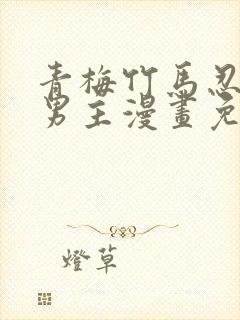 青梅竹馬忍
男主漫畫免
燈草